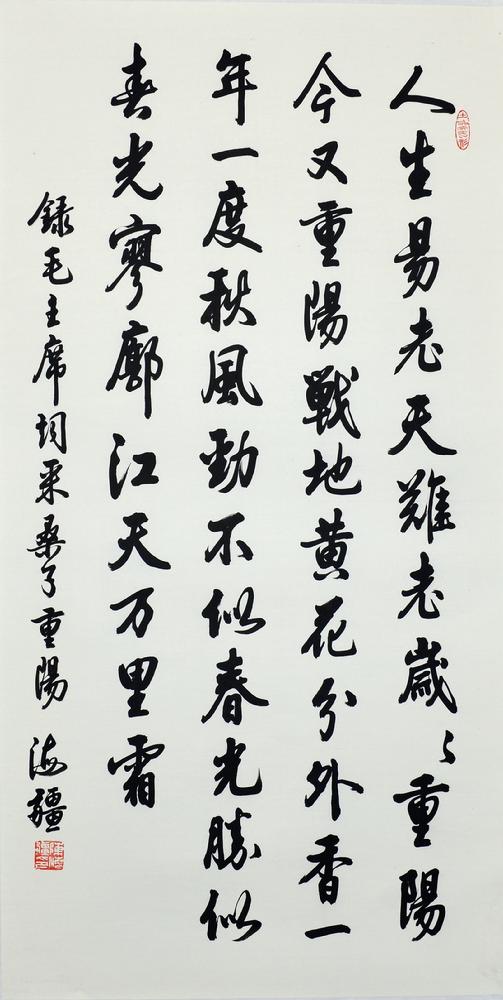 人生易老天難老歲々重陽
今又重陽戰地黄花分外香一
年一度秋風勁不似春光勝似
春光寥廓江天万里霜
録毛主席詞采桑子重陽 海疆